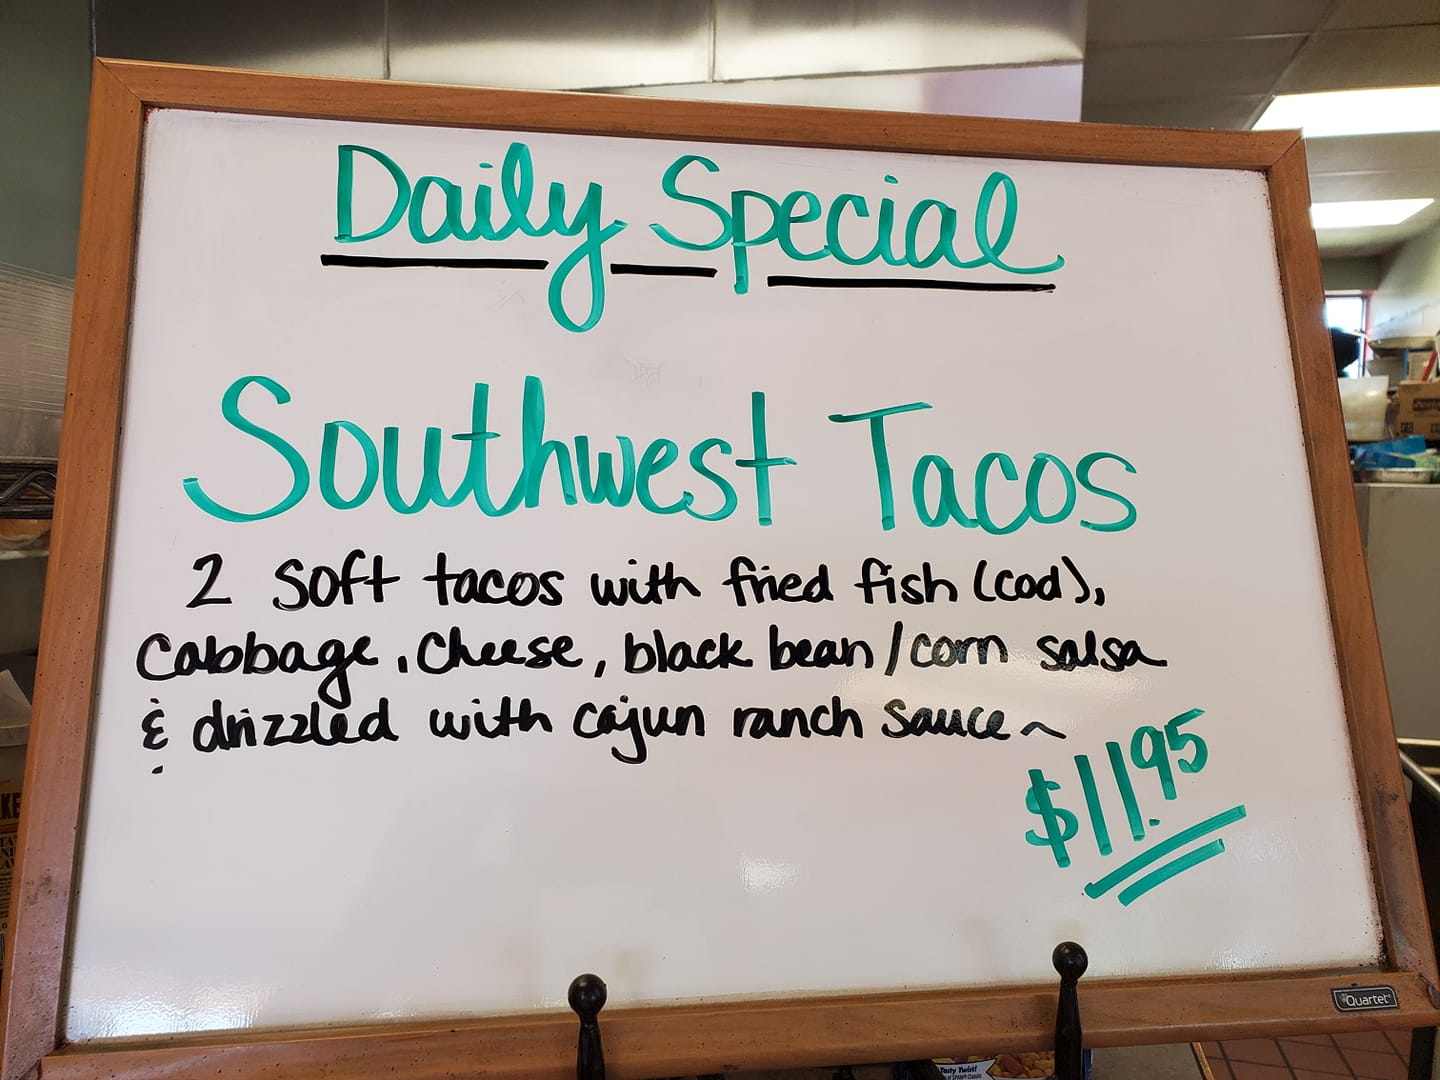 Daily Special
Southwest Tacos
2 soft tacos with fried fish (cod),
Cabbage, cheese, black bean/corn salsa
& drizzled with cajun ranch sauce~
$11.95
Quartet
Tasty Twist!